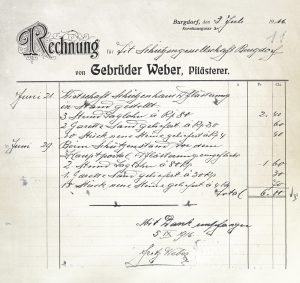 Burgdorf, den 3 Juli 1916
Rechnung für Tit. Schützengesellschaft Burgdorf
von Gebrüder Weber, Pflästerer.
Juni 21 Wirtschaft Schützenhaus Pflästerung
in Stand gestellt
3 Stund Taglohn à Rp 80 2 40
2 Garette Sand geliefert à Rp 30 60
10 Stück neue Steine geliefert à Rp 4 40
Juni 29 Beim Schützenstand vor dem
Hauptportal Pflästerung
2 Stund Taglohn à 80 Rp 1 60
1 Garette Sand geliefert à 30 Rp 30
Stück neue Steine geliefert à 4 Rp
Total 6
Mit Dank empfangen
5 1916
Fritz Weber